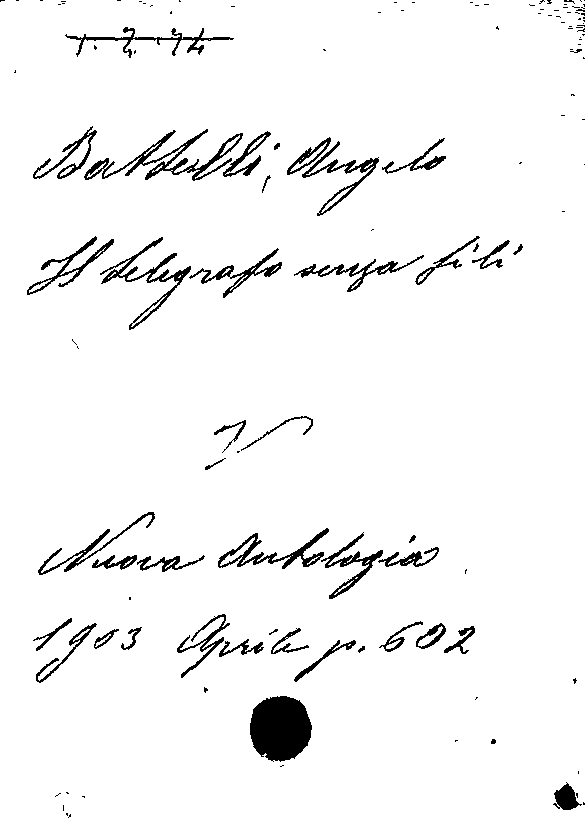 Battelli, Angelo
Il telegrafo senza fili
Nuova Antologia
1903 Aprile p. 602